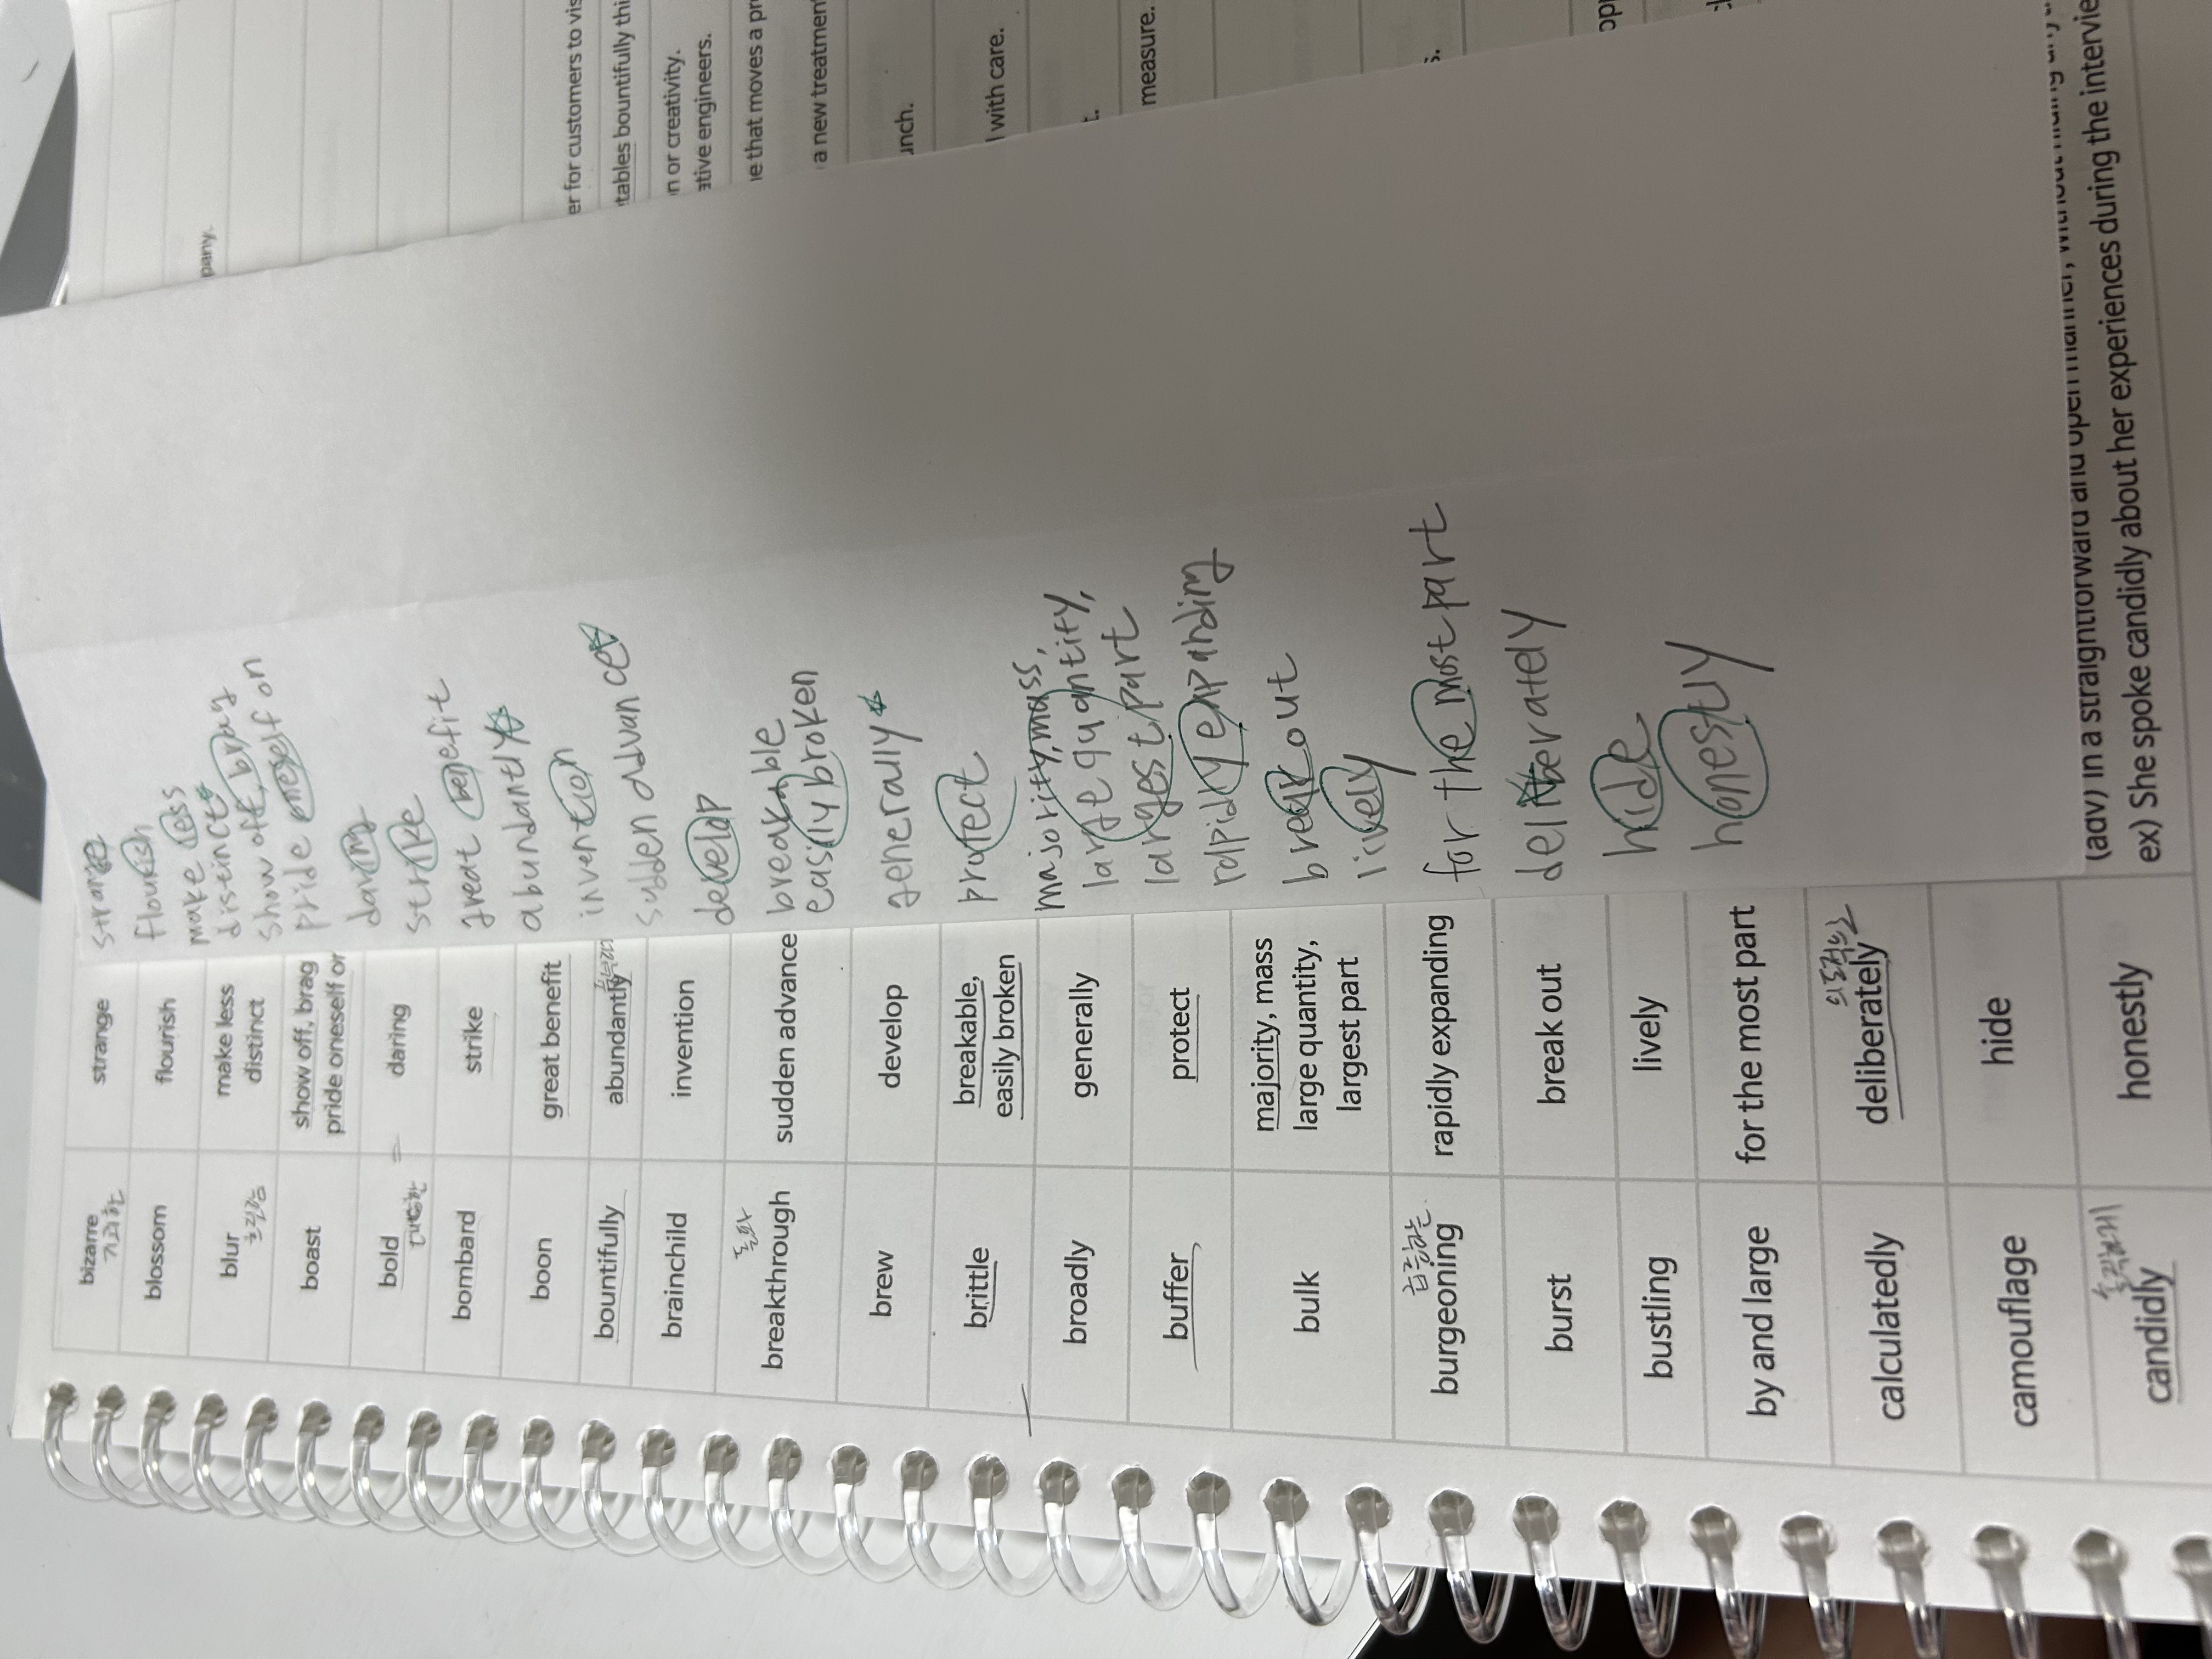 bizarre
기괴한
strange
blossom
flourish
blur
흐릿함
make less
distinct
boast
show off, brag
pride oneself on
bold
대담한
=
daring
bombard
strike
boon
great benefit
bountifully
abundantly
brainchild
invention
breakthrough
돌파
sudden advance
brew
develop
brittle
breakable,
easily broken
broadly
generally
buffer
protect
bulk
majority, mass
large quantity,
largest part
burgeoning
급증하는
rapidly expanding
burst
break out
bustling
lively
by and large
for the most part
calculatedly
의도적으로
deliberately
camouflage
hide
candidly
솔직하게
honestly
flourish
make less
distinct
show off, brag
pride oneself on
daring
strike
great benefit
abundantly
invention
sudden advance
develop
breakable
easily broken
generally
protect
majority, mass,
large quantity,
largest part
rapidly expanding
break out
lively
for the most part
deliberately
hide
honestly
pany.
er for customers to vis
tables bountifully thi
n or creativity.
ative engineers.
ne that moves a pr
a new treatmen
unch.
with care.
t.
measure.
s.
(adv) in a straightforward and open manner, without hiding any
ex) She spoke candidly about her experiences during the intervie